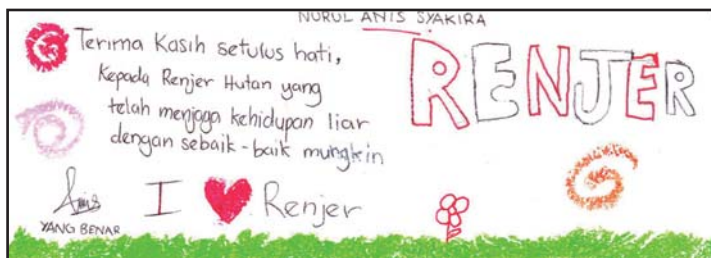 NURUL ANIS SYAKIRA
RENJER
Terima Kasih setulus hati,
Kepada Renjer Hutan yang
telah menjaga kehidupan liar
dengan sebaik-baik mungkin
Anis
I ♥ Renjer
YANG BENAR